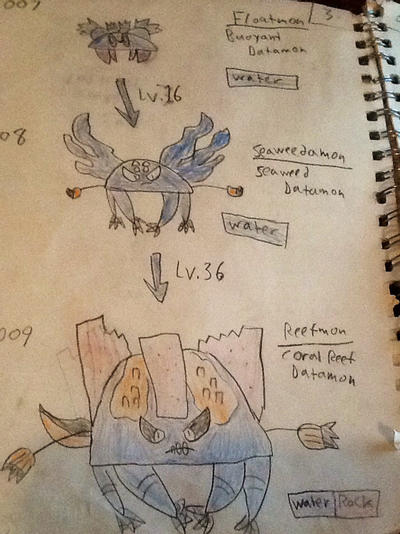 007
Floatmon
3
Buoyant
Datamon
water
Lv.16
08
Seaweedamon
Seaweed
Datamon
water
Lv.36
009
Reefmon
Coral Reef
Datamon
water Rock